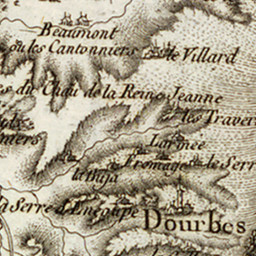 Beaumont
ou les Cantonniers
le Villard
es du Chau de la Reine Jeanne
les Traver
niers
Larmée
Fromage
le Serr
la Baja
a Serre d'Emeoupe
Dourbes